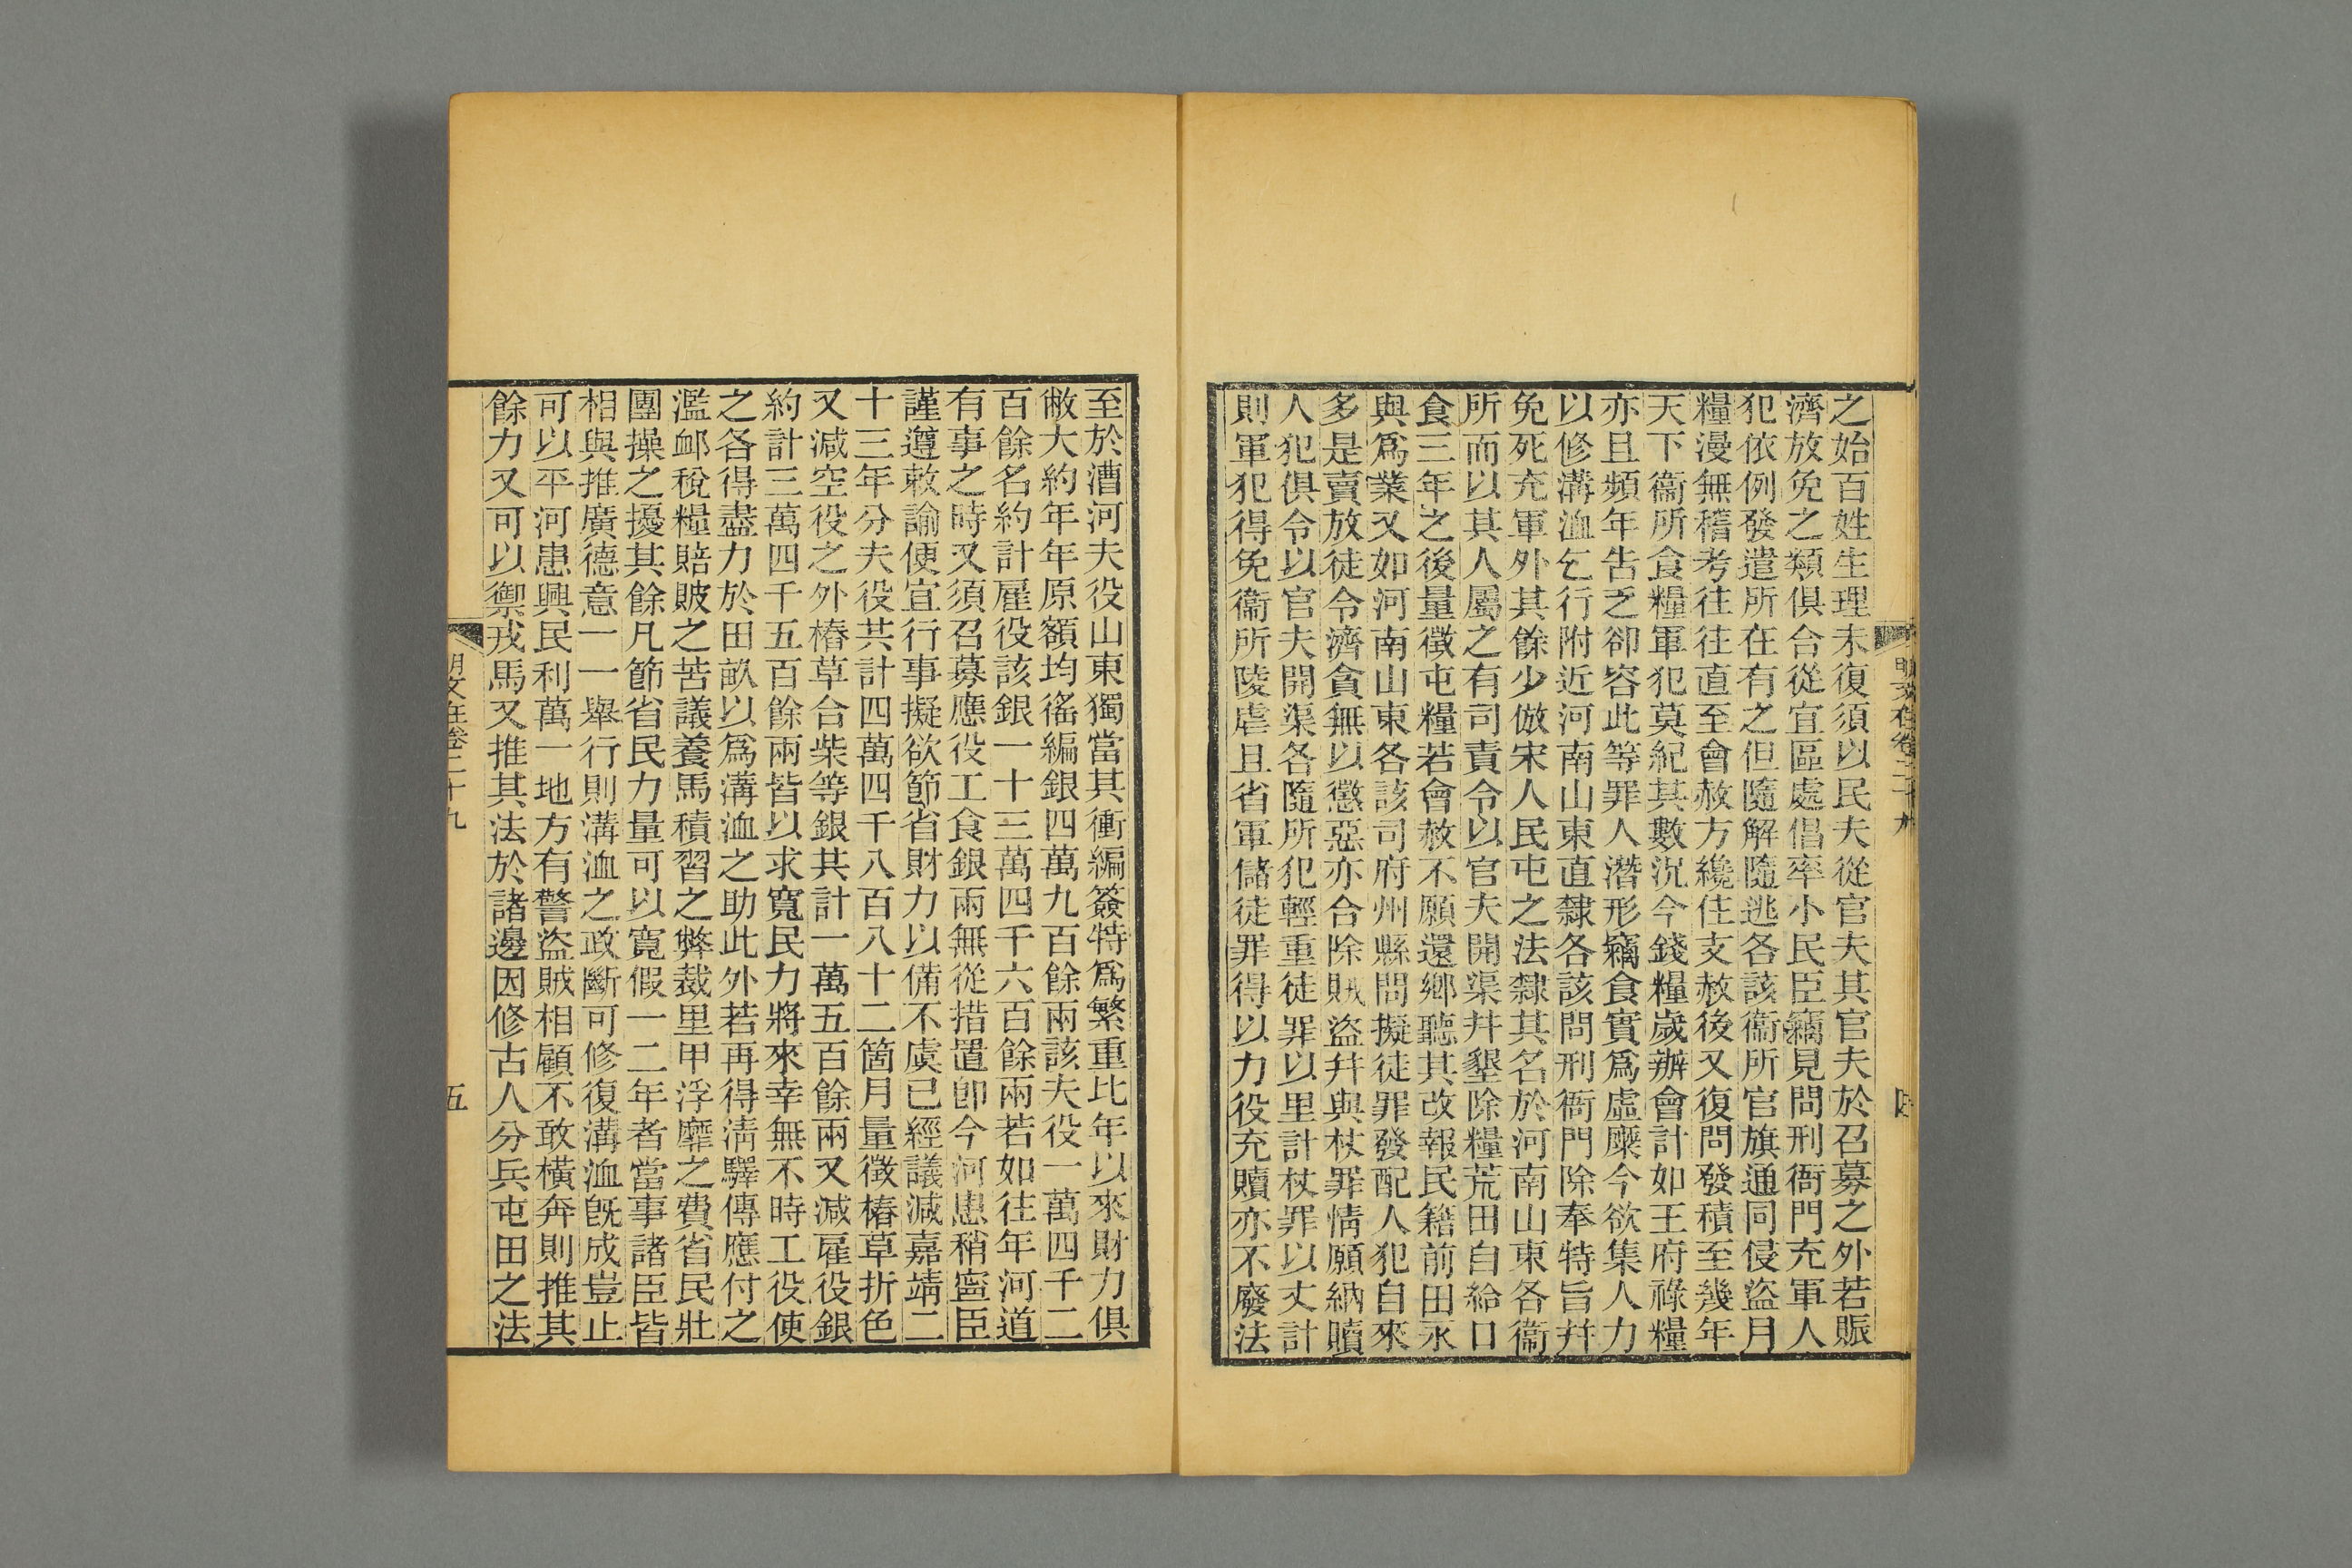 之始百姓生理未復須以民夫從官夫其官夫於召募之外若賑
濟放免之類俱合從宜區處倡率小民臣竊見問刑衙門充軍人
犯依例發遣所在有之但隨解隨逃各該衞所官旗通同侵盜月
糧漫無稽考往往直至會赦方纔住支赦後又復問發積至幾年
天下衞所食糧軍犯莫紀其數況今錢糧歲辦會計如王府祿糧
亦且頻年告乏卻容此等罪人潛形竊食實爲虛糜今欲集人力
以修溝洫乞行附近河南山東直隸各該問刑衙門除奉特旨幷
免死充軍外其餘少倣宋人民屯之法隸其名於河南山東各衞
所而以其人屬之有司責令以官夫開渠幷墾除糧荒田自給口
食三年之後量徵屯糧若會赦不願還鄉聽其改報民籍前田永
與爲業又如河南山東各該司府州縣問擬徒罪發配人犯自來
多是賣放徒令濟貪無以懲惡亦合除賊盜幷與杖罪情願納贖
人犯俱令以官夫開渠各隨所犯輕重徒罪以里計杖罪以丈計
則軍犯得免衞所陵虐且省軍儲徒罪得以力役充贖亦不廢法
明文在卷二十九
至於漕河夫役山東獨當其衝編簽特爲繁重比年以來財力俱
敝大約年年原額均徭編銀四萬九百餘兩該夫役一萬四千二
百餘名約計雇役該銀一十三萬四千六百餘兩若如往年河道
有事之時又須召募應役工食銀兩無從措置卽今河患稍寧臣
謹遵敕諭便宜行事擬欲節省財力以備不虞已經議減嘉靖二
十三年分夫役共計四萬四千八百八十二箇月量徵椿草折色
又減空役之外椿草合柴等銀共計一萬五百餘兩又減雇役銀
約計三萬四千五百餘兩皆以求寬民力將來幸無不時工役使
之各得盡力於田畝以爲溝洫之助此外若再得淸驛傳應付之
濫邮稅糧賠貱之苦議養馬積習之弊裁里甲浮靡之費省民壯
團操之擾其餘凡節省民力量可以寬假一二年者當事諸臣皆
相與推廣德意一一舉行則溝洫之政斷可修復溝洫旣成豈止
可以平河患興民利萬一地方有警盜賊相顧不敢橫奔則推其
餘力又可以禦戎馬又推其法於諸邊因修古人分兵屯田之法
明文在卷二十九
五